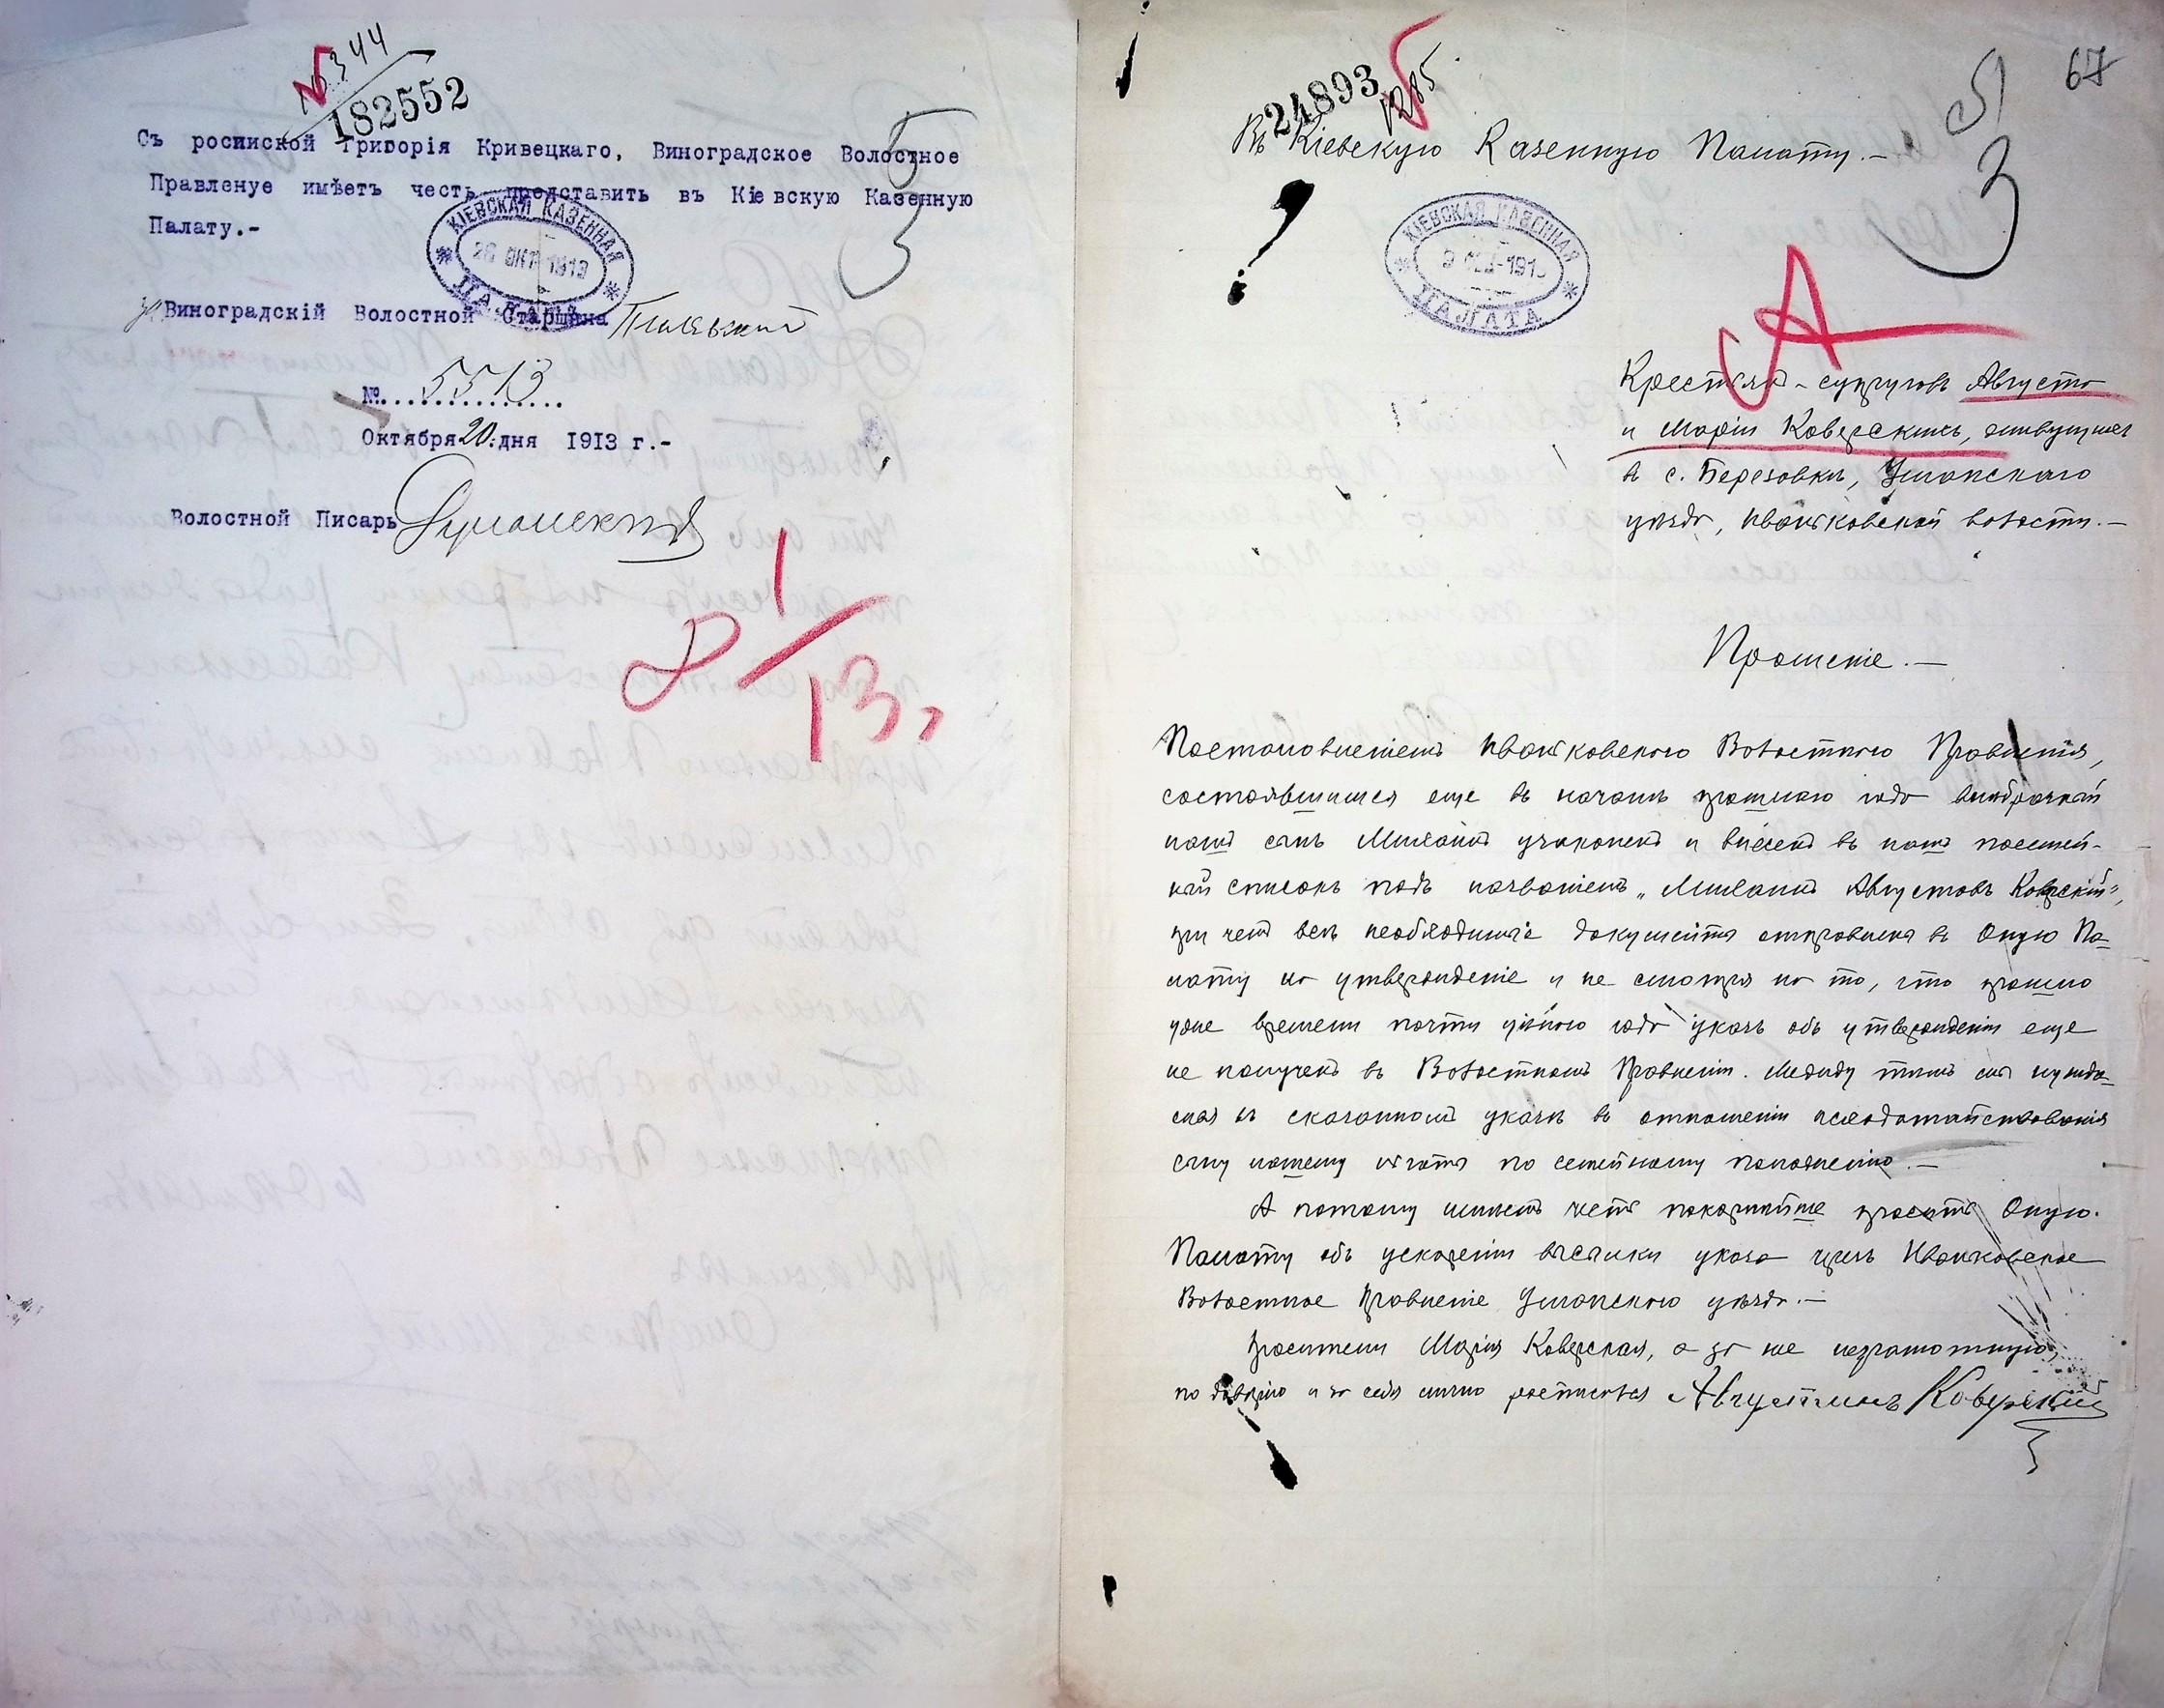 № 344
182552
Съ роспиской Григорія Кривецкаго, Виноградское Волостное
Правленуе имѣетъ честь представить въ Кіевскую Казенную
Палату.-
КІЕВСКАЯ КАЗЕННАЯ
26 ОКТ 1913
ПАЛАТА
за Виноградскій Волостной Старшина
№. 5513
Октября 20. дня 1913 г.-
Волостной Писарь
5
3
8 1/13.
67
24893
5
3
Въ Кіевскую Казенную Палату.-
КІЕВСКАЯ КАЗЕННАЯ
ПАЛАТА
А
Крестьянъ-супруговъ Августа
и Маріи Коверскихъ, живущихъ
въ с. Березовкѣ, Уманскаго
уѣзда, Иваньковской волости.-
Прошеніе.-
Постановленіемъ Иваньковскаго Волостного Правленія,
состоявшимся еще въ началѣ прошлаго года внѣбрачный
нашъ сынъ Михаилъ узаконенъ и внесенъ въ нашъ посемей-
ный списокъ подъ названіемъ „Михаилъ Августовъ Коверскій",
при чемъ всѣ необходимые документы отправлены въ Оную Па-
лату на утвержденіе и не смотря на то, что прошло
уже времени почти цѣлаго года указъ объ утвержденіи еще
не полученъ въ Волостномъ Правленіи. Между тѣмъ мы нужда-
емся въ сказанномъ указѣ въ отношеніи исходатайствованія
сыну нашему льготы по семейному положенію.-
А потому имѣемъ честь покорнѣйше просить Оную.
Палату объ ускореніи высылки указа чрезъ Иваньковское
Волостное Правленіе Уманскаго уѣзда.-
Просители Марія Коверская, а за нее неграмотную,
по довѣрію и за себя лично росписался Августинъ Коверскій